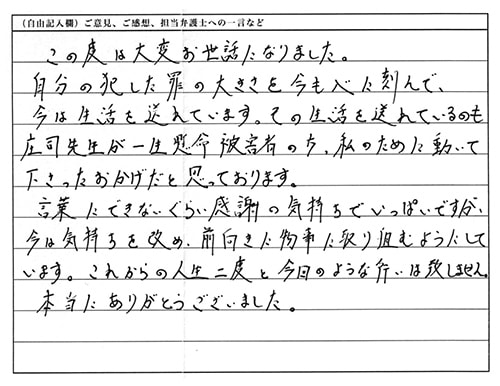 （自由記入欄）ご意見、ご感想、担当弁護士への一言など
この度は大変お世話になりました。
自分の犯した罪の大きさを今も心に刻んで、
今は生活を送れています。その生活を送れているのも
庄司先生が一生懸命被害者の方、私のために動いて
下さったおかげだと思っております。
言葉にできないぐらい感謝の気持ちでいっぱいですが、
今は気持ちを改め、前向きに物事に取り組むようにして
います。これからの人生二度と今回のような行いは致しません。
本当にありがとうございました。